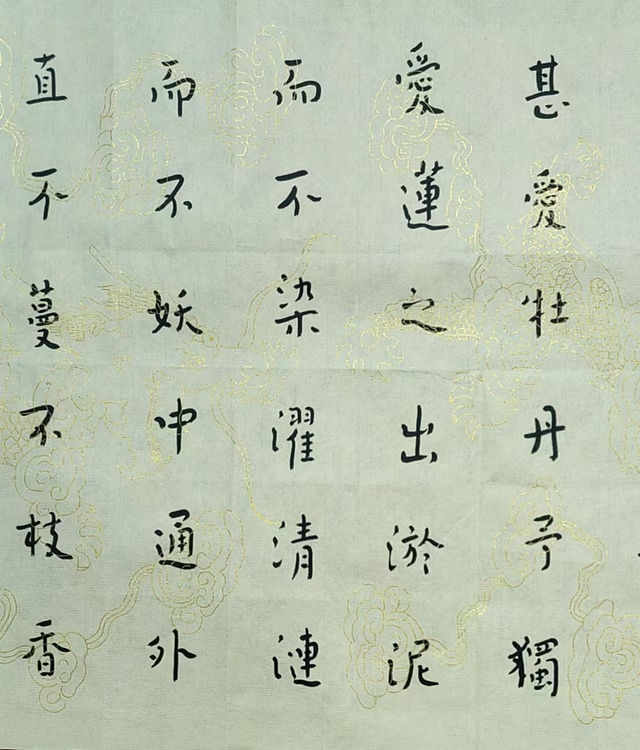 甚愛牡丹予獨
愛蓮之出淤泥
而不染濯清漣
而不妖中通外
直不蔓不枝香